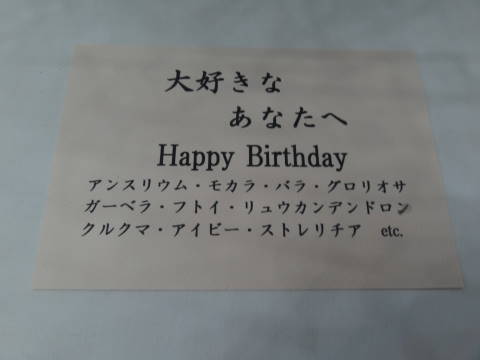 大好きな
あなたへ
Happy Birthday
アンスリウム・モカラ・バラ・グロリオサ
ガーベラ・フトイ・リュウカンデンドロン
クルクマ・アイビー・ストレリチア etc.